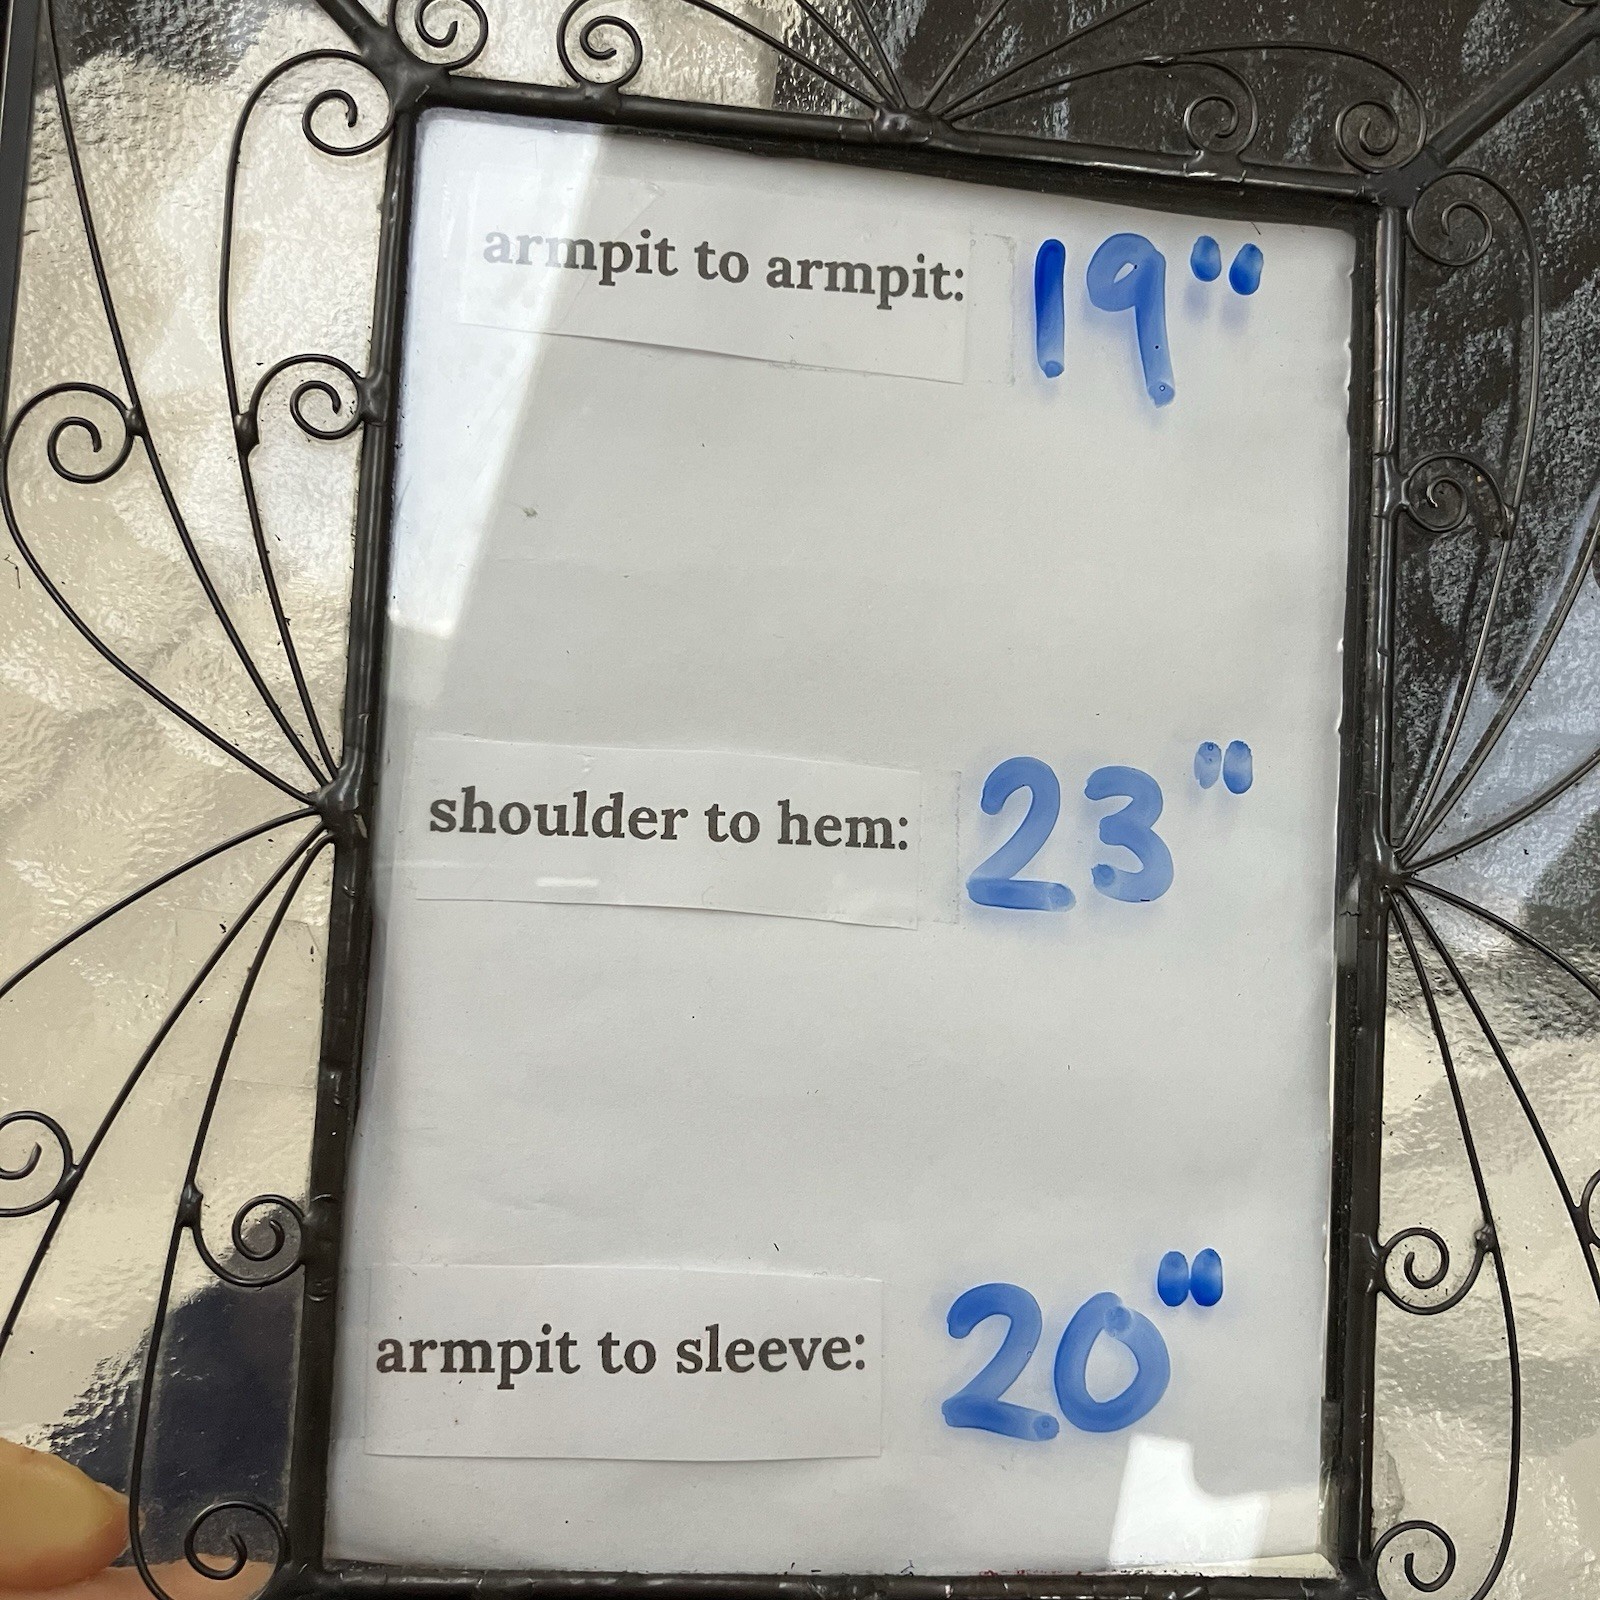 armpit to armpit: 19"
shoulder to hem: 23"
armpit to sleeve: 20"